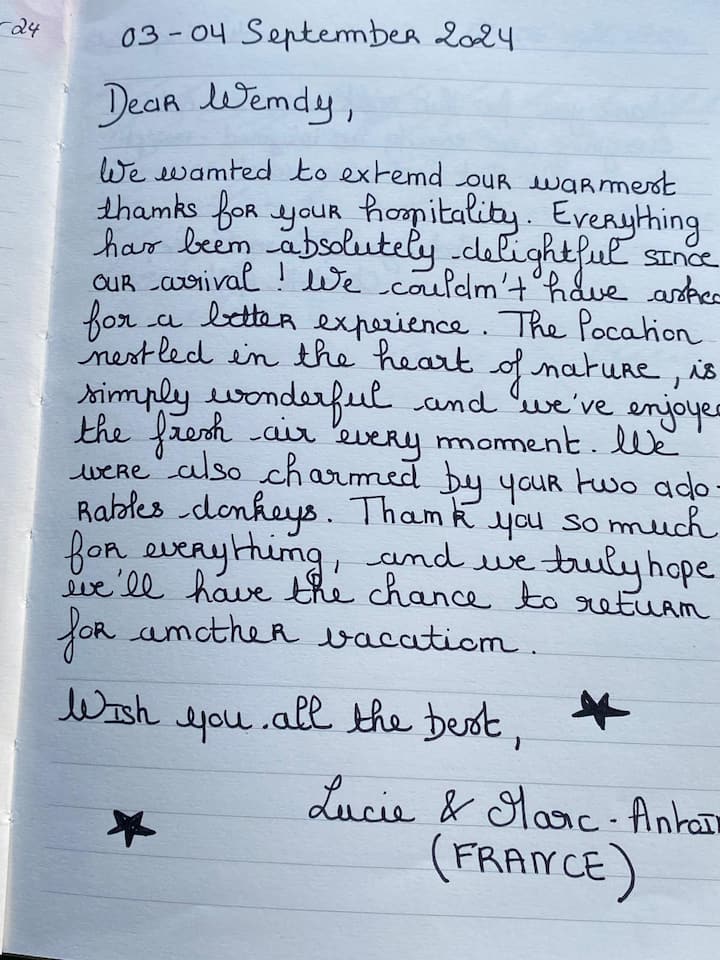 -24
03-04 September 2024
Dear Wendy,
We wanted to extend our warmest
thanks for your hospitality. Everything
has been absolutely delightful since
our arrival! We couldn't have aske
for a better experience. The location
nestled in the heart of nature, is
simply wonderful and we've enjoye
the fresh air every moment. We
were also charmed by your two ado-
rables donkeys. Thank you so much
for everything, and we truly hope
we'll have the chance to return
for another vacation.
Wish you all the best,
Lucie & Marc-Antoi
(FRANCE)